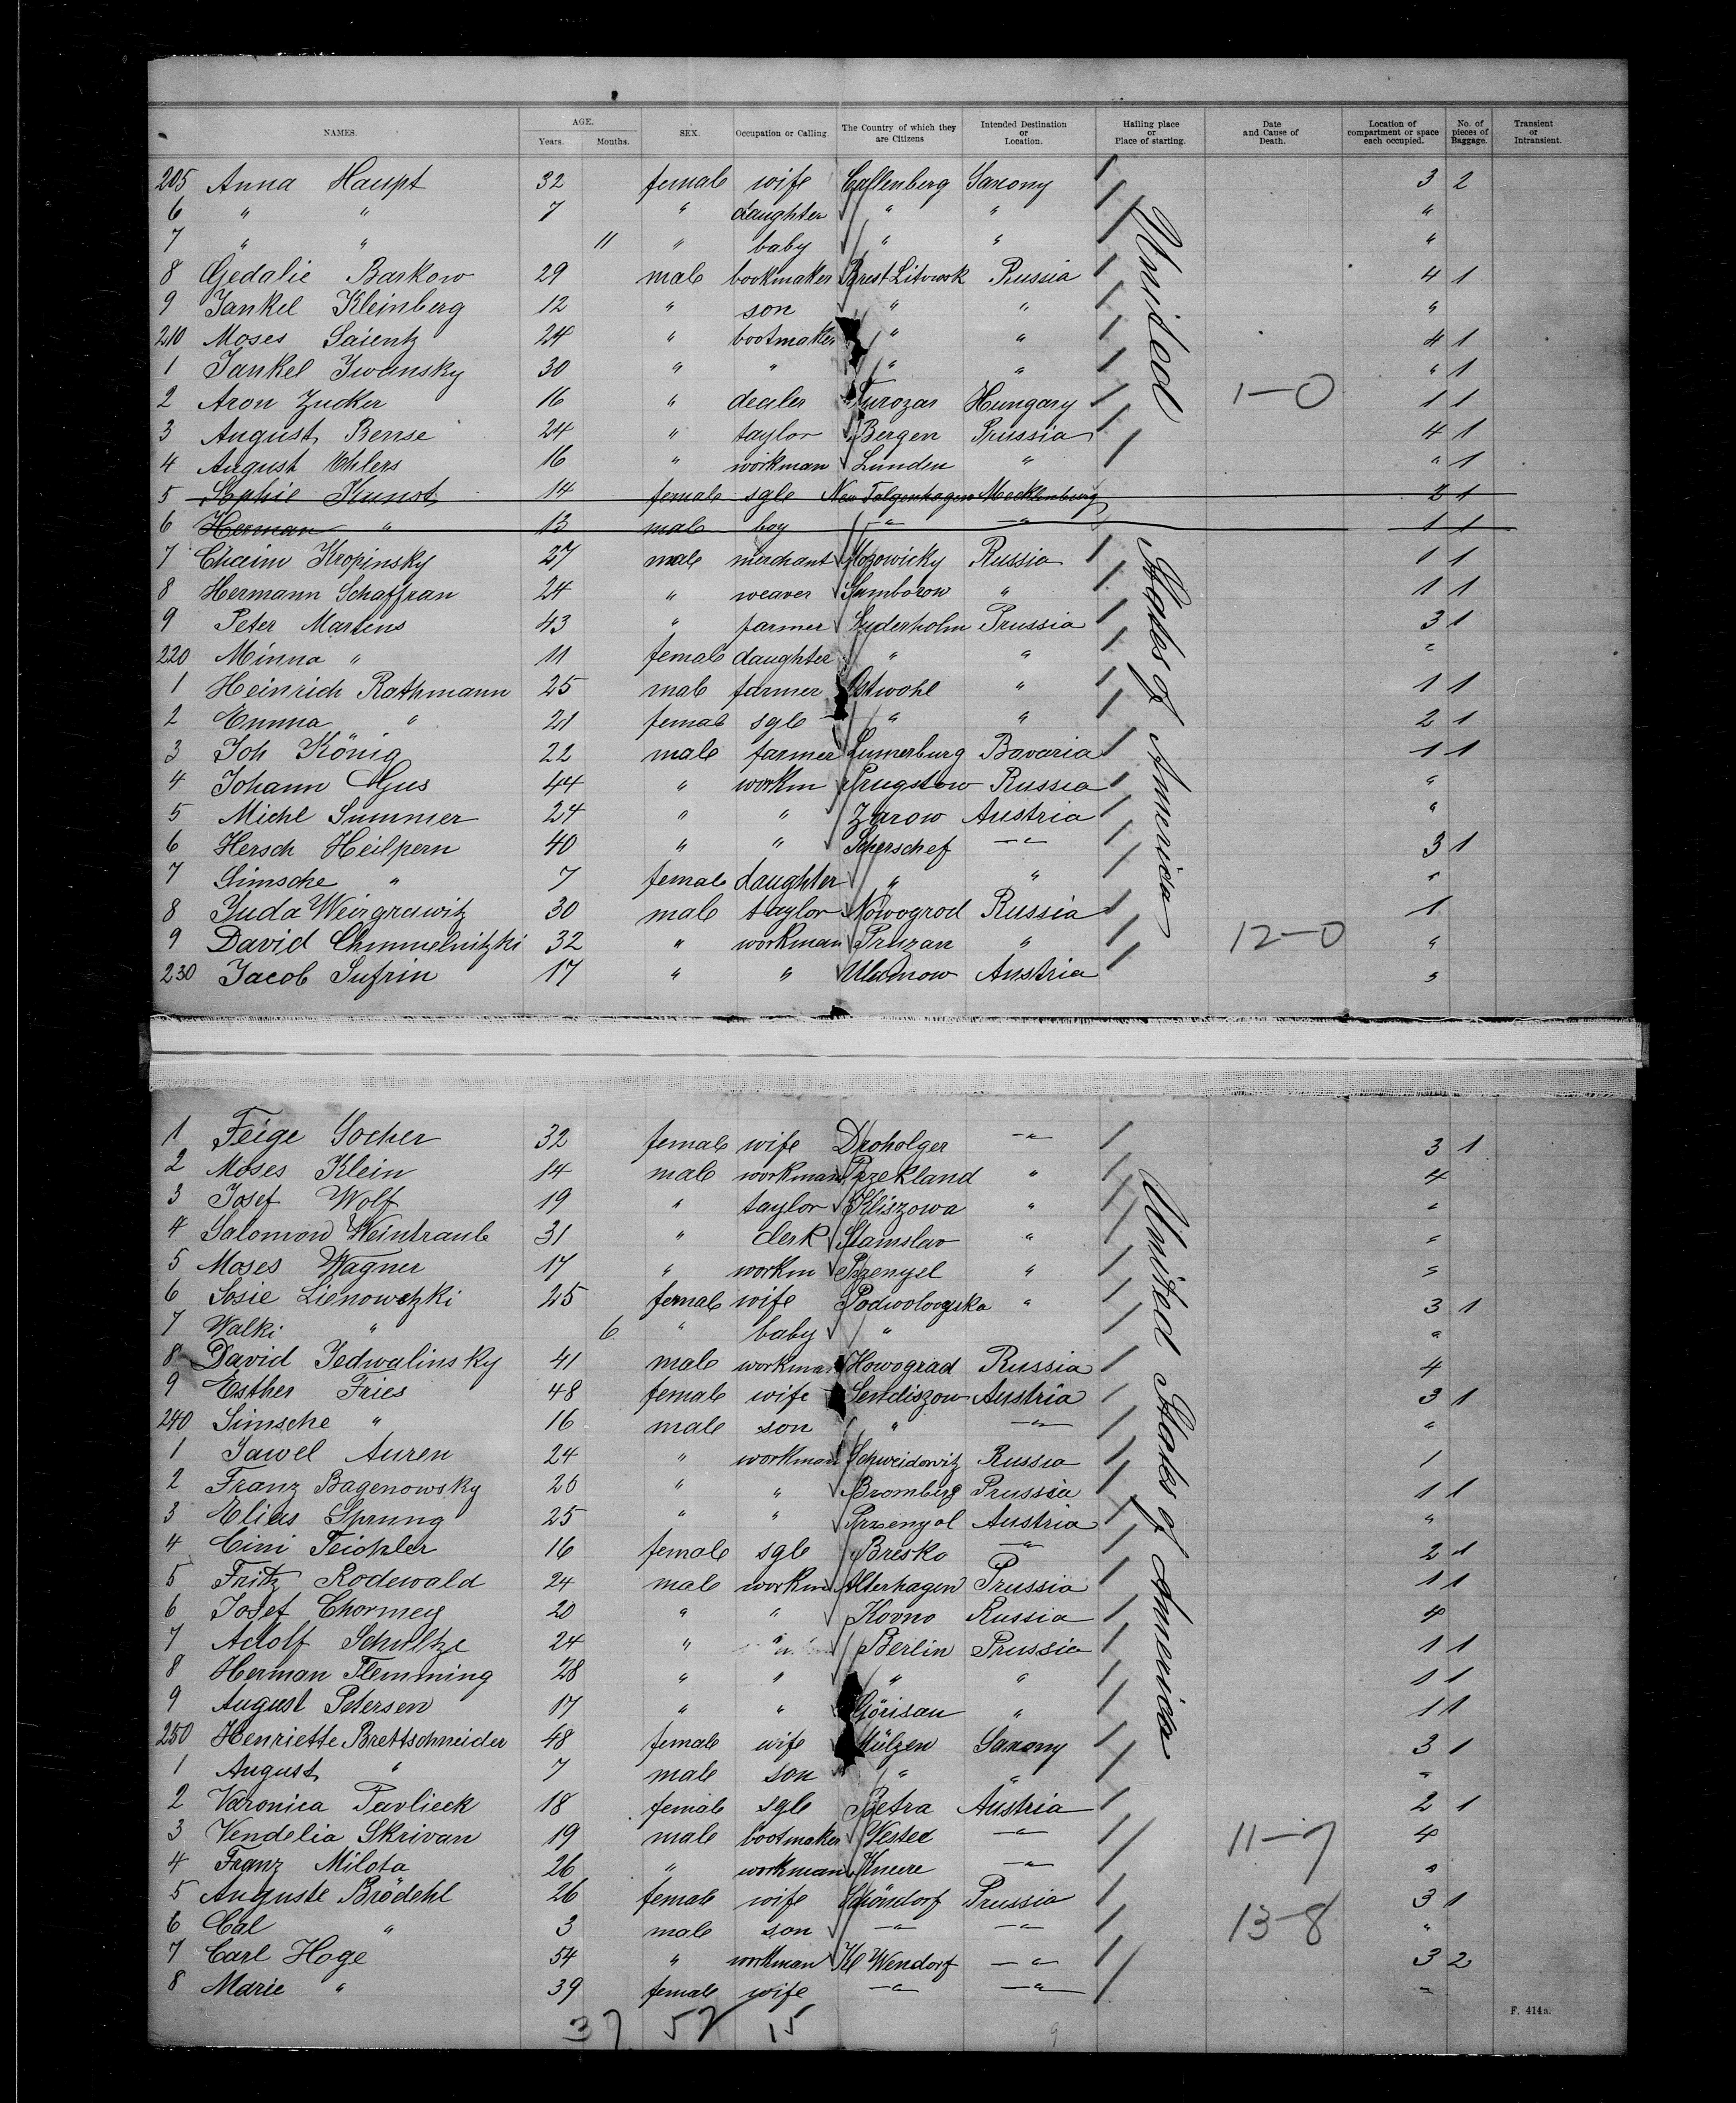 NAMES. AGE. Years. Months. SEX. Occupation or Calling The Country of which they are Citizens Intended Destination or Location. Hailing place or Place of starting. Date and Cause of Death. Location of compartment or space each occupied. No. of pieces of Baggage. Transient or Intransient.
205 Anna Haupt 32 female wife Callenberg Saxony 3 2
6 " " 7 " daughter " " "
7 " " 11 " baby " " "
8 Gedalie Barkow 29 male bookmaker Brest Litowsk Russia 4 1
9 Jankel Kleinberg 12 " son " " "
210 Moses Saientz 24 " bootmaker " " 4 1
1 Jankel Iwansky 30 " " " " " 1
2 Aron Zucker 16 " dealer Turozar Hungary 1-0 1 1
3 August Bense 24 " taylor Bergen Prussia 4 1
4 August Ehlers 16 " workman Lunden " " 1
5 Sophie Kunst 14 female sgle New Talgenhagen Mecklenburg 2 1
6 Herman " 13 male boy " " 1 1
7 Chaim Kropinsky 27 male merchant Mozowicky Russia 1 1
8 Hermann Schaffran 24 " weaver Samborow " 1 1
9 Peter Martens 43 " farmer Suderholm Prussia 3 1
220 Minna " 11 female daughter " " "
1 Heinrich Rathmann 25 male farmer Ostwohl " 1 1
2 Emma " 21 female sgle " " 2 1
3 Joh König 22 male farmer Lumerburg Bavaria 1 1
4 Johann Gus 44 " workm Prugstow Russia "
5 Michl Summer 24 " " Zarow Austria "
6 Hersch Heilpern 40 " " Scherschef " 3 1
7 Simsche " 7 female daughter " " "
8 Juda Weirgruwitz 30 male taylor Nowogrod Russia 1
9 David Chmmelnitzki 32 " workman Pruzan " 12-0 "
230 Jacob Sufrin 17 " " Ulamow Austria "
United States of America
1 Feige Socher 32 female wife Droholger " 3 1
2 Moses Klein 14 male workman Przekland " 4
3 Josef Wolf 19 " taylor Kliszowa " "
4 Salomon Weintraub 31 " clerk Stamslav " "
5 Moses Wagner 17 " workm Przemyel " "
6 Sosie Lienowetzki 25 female wife Podwolovyska " 3 1
7 Walki " 6 " baby " "
8 David Jedwalinsky 41 male workman Nowograd Russia 4
9 Esther Fries 48 female wife Sendiszow Austria 3 1
240 Simsche " 16 male son " " "
1 Jawel Auren 24 " workman Schweidowitz Russia 1
2 Franz Bagenowsky 26 " " Bromberg Prussia 1 1
3 Elias Sprung 25 " " Przemyol Austria "
4 Cini Teichler 16 female sgle Bresko " 2 1
5 Fritz Rodewald 24 male workm Alterhagen Prussia 1 1
6 Josef Chormey 20 " " Kovno Russia 4
7 Adolf Schultze 24 " " Berlin Prussia 1 1
8 Herman Flemming 28 " " " " 1 1
9 August Petersen 17 " " Görisau " 1 1
250 Henriette Brettschneider 48 female wife Mülzen Saxony 3 1
1 August " 7 male son " " "
2 Varonica Pavlicek 18 female sgle Petra Austria 2 1
3 Vendelia Skrivan 19 male bootmaker Vestec " 11-7 4
4 Franz Milota 26 " workman Knere " "
5 Auguste Brödehl 26 female wife Schöndorf Prussia 3 1
6 Cal " 3 male son " " 13-8 "
7 Carl Hoge 54 " workman Kl Wendorf " 3 2
8 Marie " 39 female wife " " "
United States of America
37 52 15 9
F. 414a.